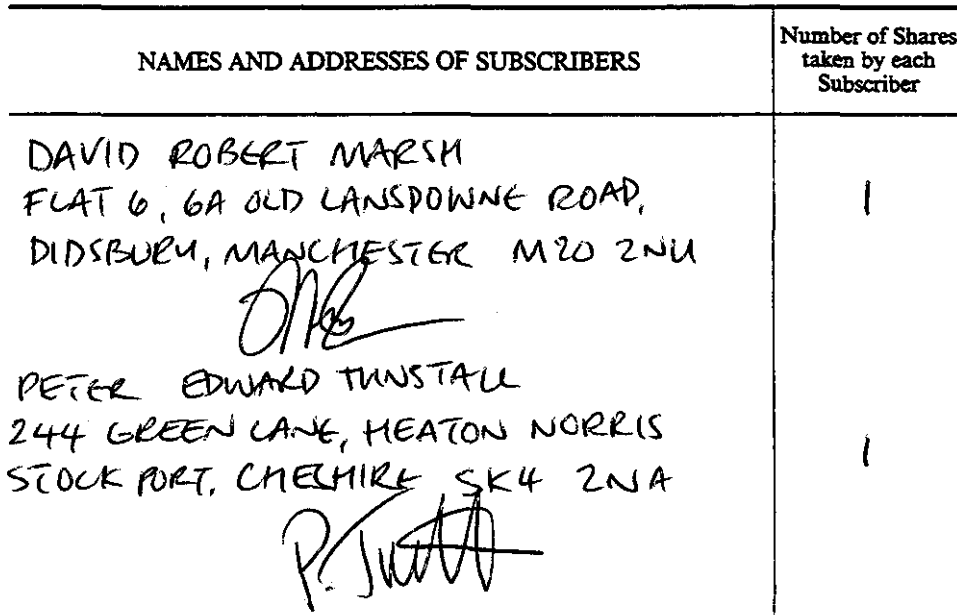 NAMES AND ADDRESSES OF SUBSCRIBERS
Number of Shares
taken by each
Subscriber
DAVID ROBERT MARSH
FLAT 6, 6A OLD LANSDOWNE ROAD,
DIDSBURY, MANCHESTER M20 2NU
1
PETER EDWARD TUNSTALL
244 GREEN LANE, HEATON NORRIS
STOCKPORT, CHESHIRE SK4 2NA
1